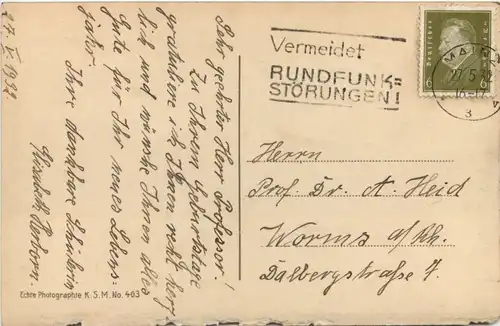 27. V. 1932
Sehr geehrter Herr Professor!
Zu Ihrem Geburtstage
gratuliere ich Ihnen recht herz
lich und wünsche Ihnen alles
Gute für Ihr neues Lebens-
jahr.
Ihre dankbare Schülerin
Elisabeth Herborn.
Echte Photographie K. S. M. No. 403
Vermeidet
RUNDFUNK=
STÖRUNGEN!
Deutsches
MAINZ
27.5.32
Herrn
Prof. Dr. A. Heid
Worms a/Rh.
Dalbergstraße 7.